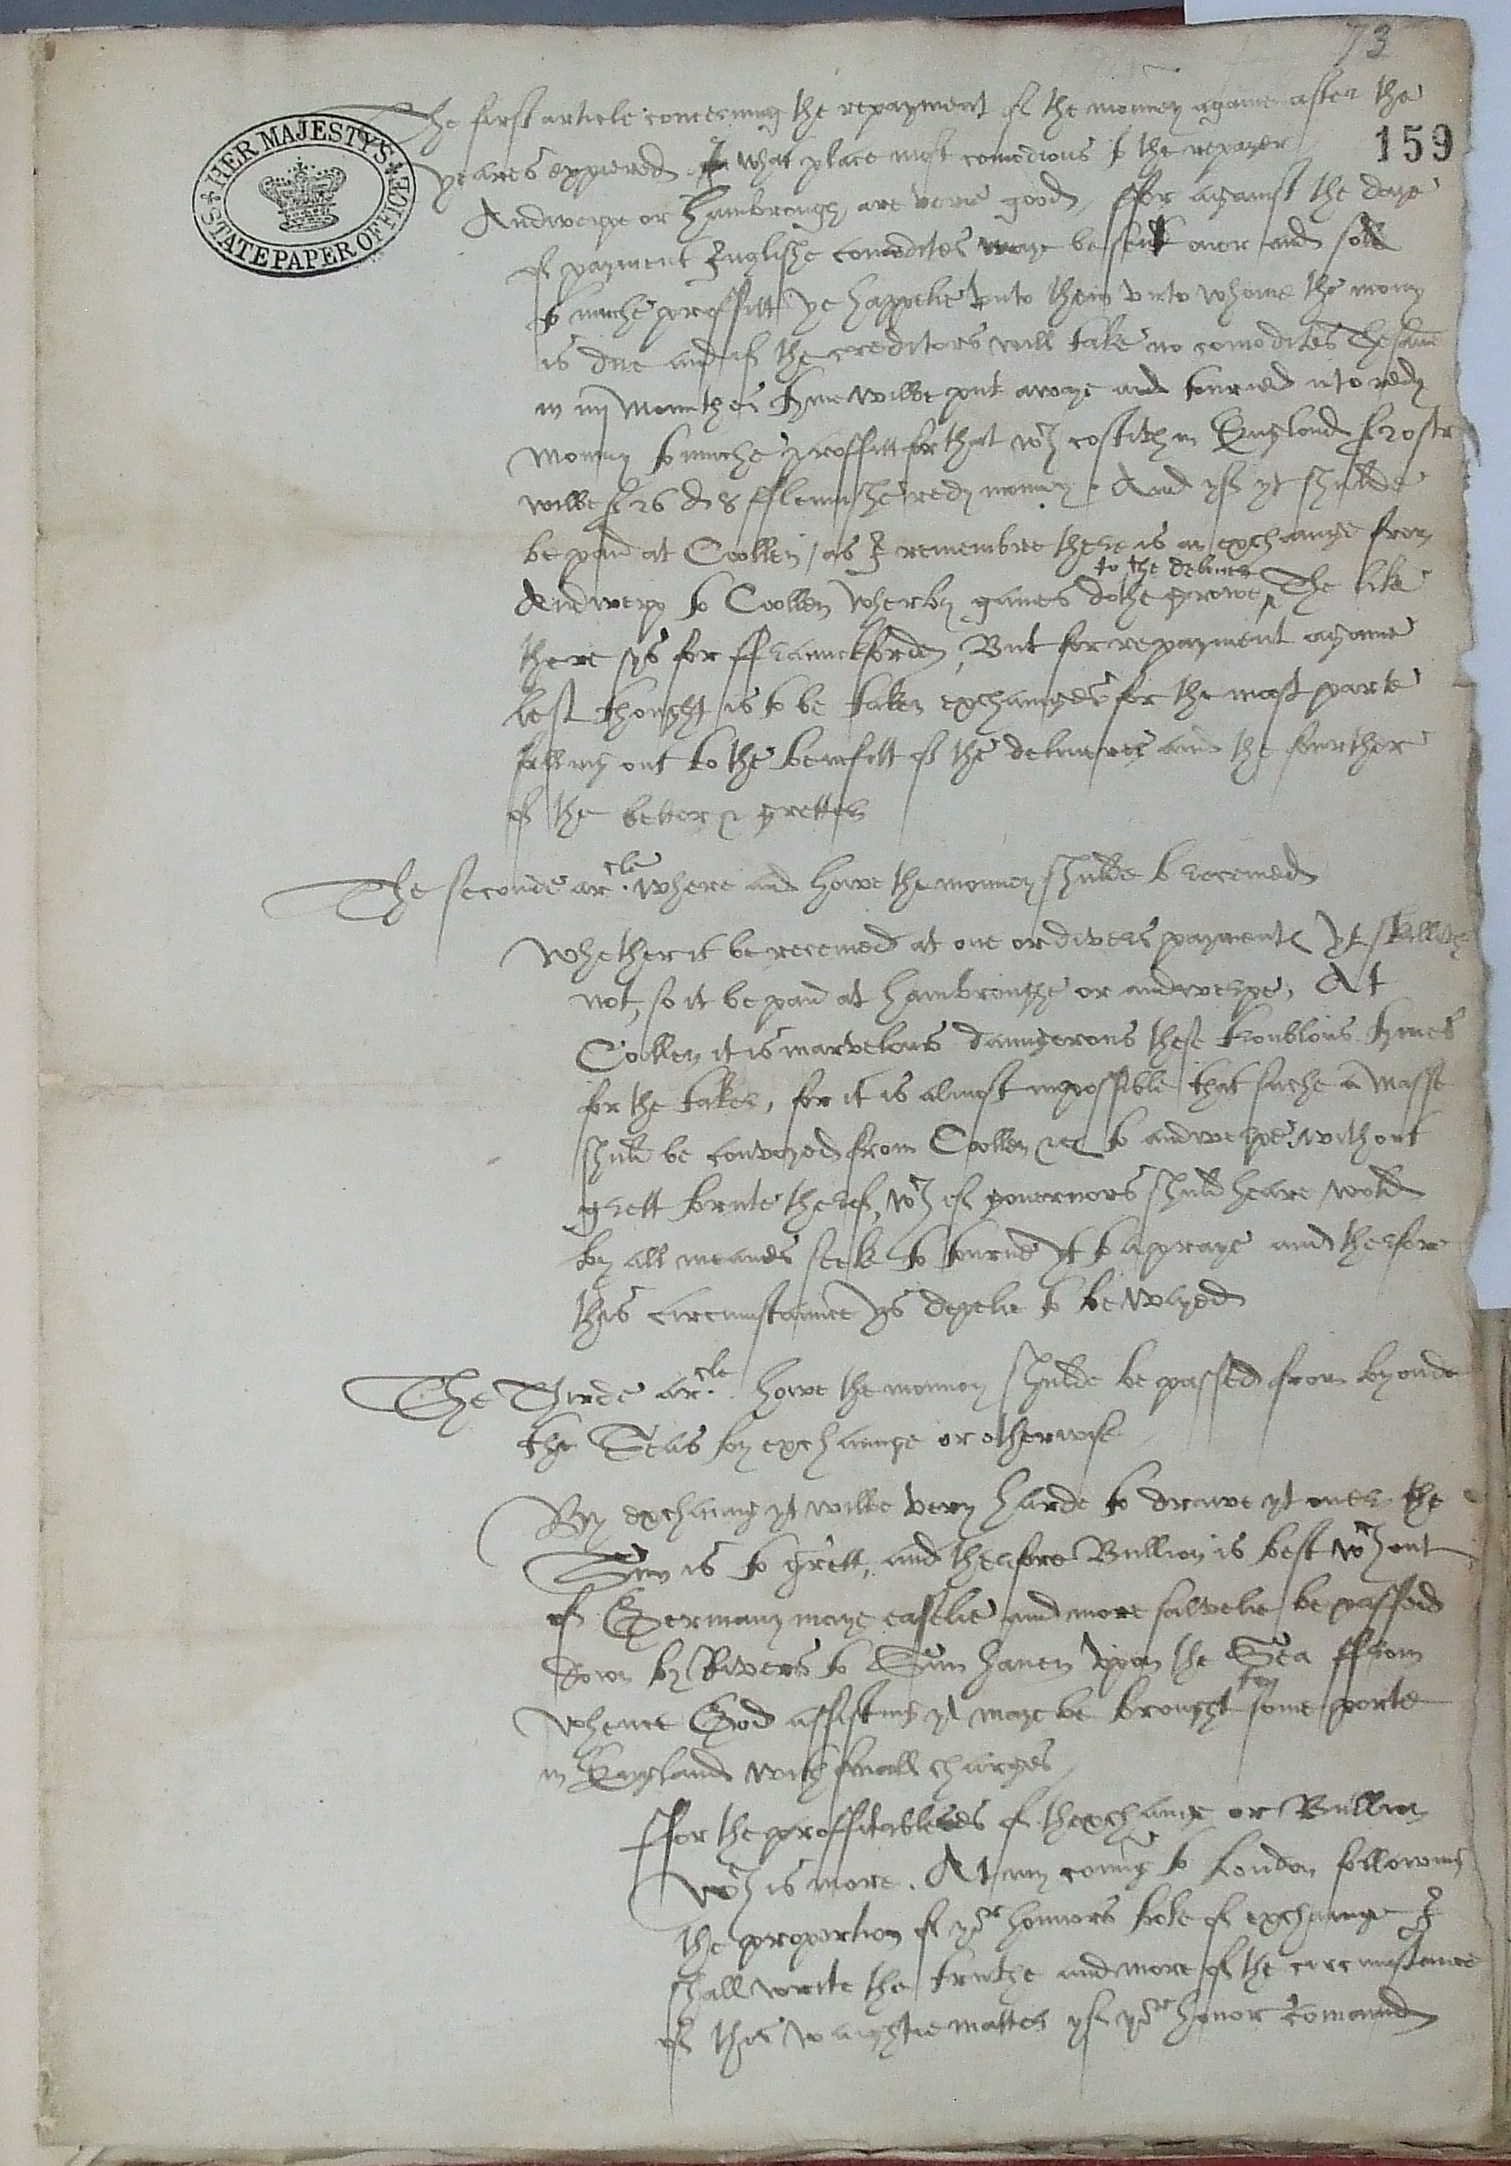 73
159
HER MAJESTY'S STATE PAPER OFFICE
The first article concerning the repayment of the monney agame after the
yeares expiered. In what place most comodious to the repayer
Andwerpe or Hambroughe are verie good, ffor against the daye
of payment Inglishe comodites maye be sent over and sold
to muche proffitt ye happelie vnto them vnto whome the mony
is due and if the creditors will take no comodites The same
in iiij monnthes tyme wilbe put awaye and tourned into redy
monney to muche proffitt for that wch costith in England £ 20 str
wilbe £ 26 d 8 fflemishe redy monney. And yf yt shulde
be paid at Coollen / as I remembre there is an exchange from
Andwerp to Coollen wherby games dothe growe to the deliuerer The like
there ys for ffranckforden, But for repayment agame
lest thought is to be taken exchaunges for the most parte
falling out to the benifitt of the deliuerer and the fourther
of the better & gretter
The seconde arcle. where and howe the monney shulde b receiued
Whether it be receiued at one or divers payments yt skillith
not, so it be paid at Hambroughe or andwerpe, At
Coollen it is marvelous daungerous these troublous tymes
for the taker, for it is almost impossible that suche a masse
shuld be conveyed from Coollen &c to andwerpe without
grett brute therof, wch if governors shuld heare wold
by all meanes seek to tourne yt to a praye and therfore
this circumstaunce ys depelie to be wayed
The Thirde arcle. howe the monney shulde be passed from byonde
the Seas by exchaunge or otherwise
By exchaung yt wilbe very harde to drawe yt over the
Sum is to grett, and therfore Bullion is best wch out
of Germany maye easelie and more salvelie be passed
down by Rivers to Sum haven vpon the Sea ffrom
whence God assisting yt maye be brought to some porte
in England with small charges
ffor the proffitablenes of thexchange or Bullion
wch is more. At my coming to London following
the proportion of yor honnors note of exchaunge I
shall write the truthe and more of the circumstance
of this waightie matter yf yor honor comaund